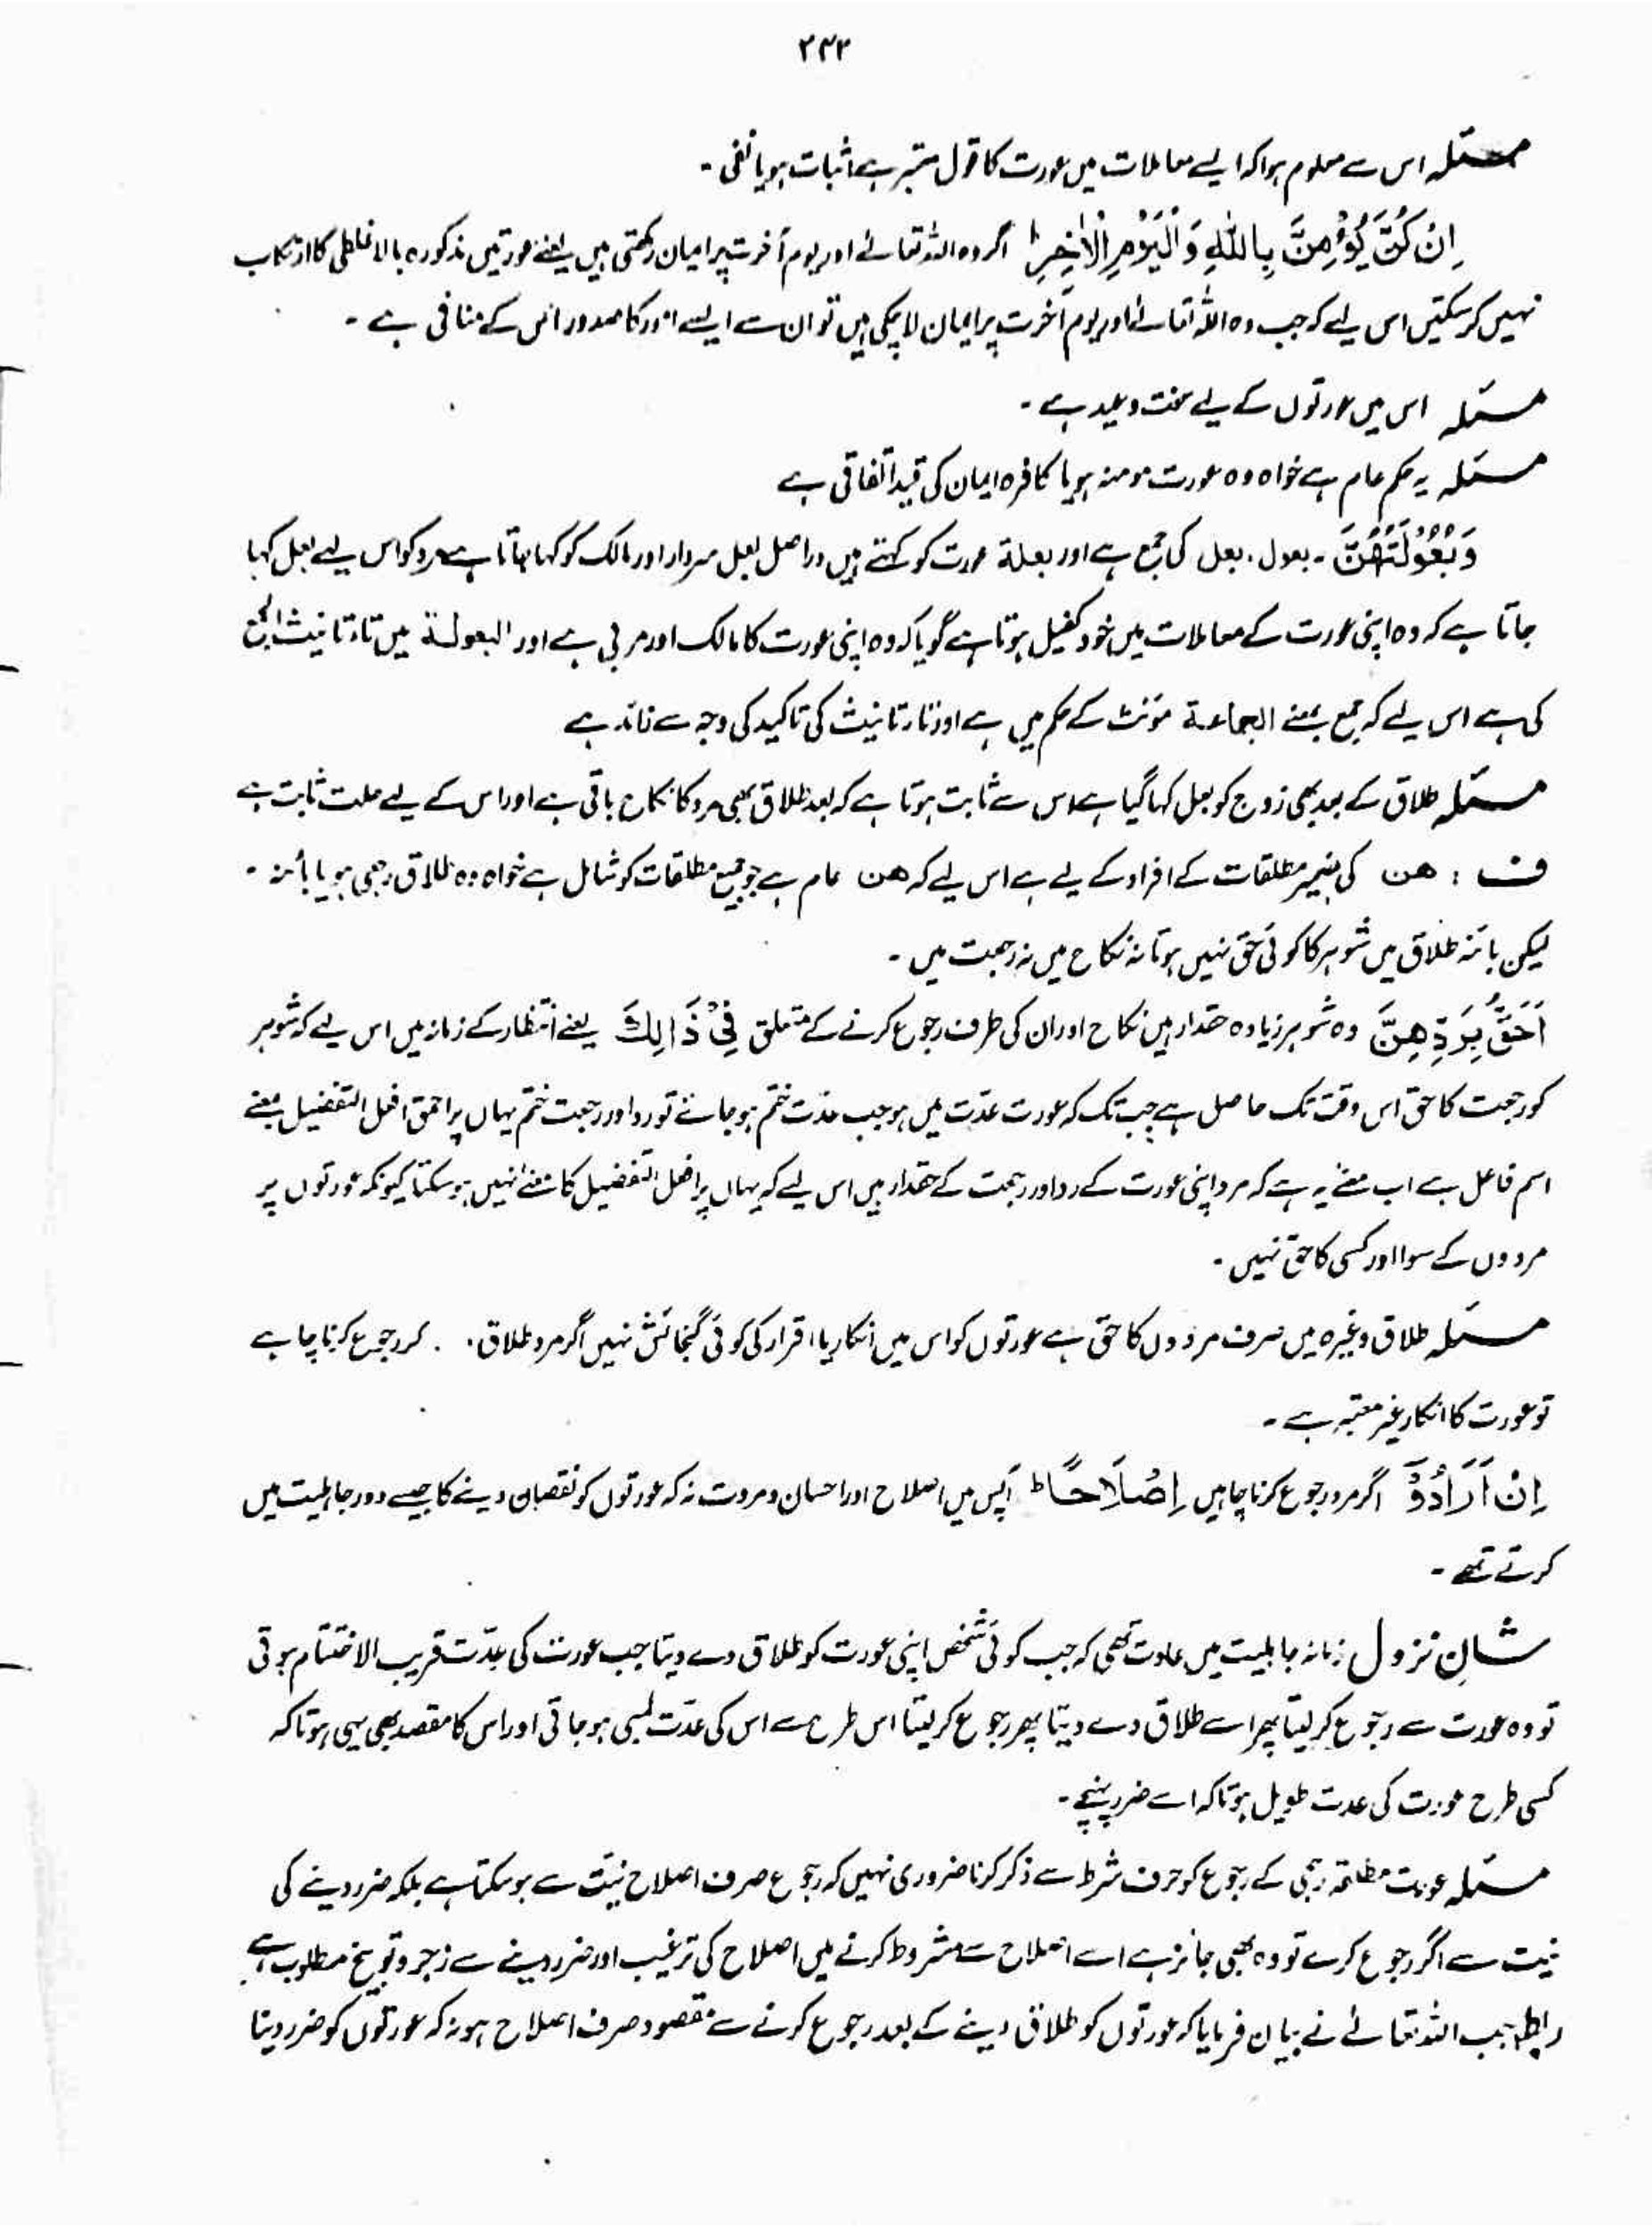 ۲۴۲
مسئلہ اس سے معلوم ہوا کہ ایسے معاملات میں عورت کا قول معتبر ہے اثبات ہو یا نفی ۔
اِنْ كُنَّ يُؤْمِنَّ بِاللّٰهِ وَالْيَوْمِ الْاٰخِرِ ؕ اگر وہ اللہ تعالےٰ اور یوم آخرت پر ایمان رکھتی ہیں یعنے عورتیں مذکورہ بالا غلطی کا ارتکاب
نہیں کر سکتیں اس لیے کہ جب وہ اللہ تعالےٰ اور یوم آخرت پر ایمان لا چکی ہیں تو ان سے ایسے امور کا صدور اس کے منافی ہے ۔
مسئلہ اس میں عورتوں کے لیے سخت وعید ہے ۔
مسئلہ یہ حکم عام ہے خواہ وہ عورت مومنہ ہو یا کافرہ ایمان کی قید اتفاقی ہے
وَبُعُوْلَتُهُنَّ ۔ بعول ۔ بعل کی جمع ہے اور بعلة عورت کو کہتے ہیں دراصل بعل سردار اور مالک کو کہا جاتا ہے مرد کو اس لیے بعل کہا
جاتا ہے کہ وہ اپنی عورت کے معاملات میں خود کفیل ہوتا ہے گویا کہ وہ اپنی عورت کا مالک اور مربی ہے اور البعولة میں تاء تانیث الجمع
کی ہے اس لیے کہ جمع بمعنے الجماعة مؤنث کے حکم میں ہے اور تاء تانیث کی تاکید کی وجہ سے زائد ہے
مسئلہ طلاق کے بعد بھی زوج کو بعل کہا گیا ہے اس سے ثابت ہوتا ہے کہ بعد طلاق بھی مرد کا نکاح باقی ہے اور اس کے لیے حلت ثابت ہے
ف : هن کی ضمیر مطلقات کے افراد کے لیے ہے اس لیے کہ هن عام ہے جو جمیع مطلقات کو شامل ہے خواہ وہ طلاق رجعی ہو یا بائنہ ۔
لیکن بائنہ طلاق میں شوہر کا کوئی حق نہیں ہوتا نہ نکاح میں نہ رجعت میں ۔
اَحَقُّ بِرَدِّهِنَّ وہ شوہر زیادہ حقدار ہیں نکاح اور ان کی طرف رجوع کرنے کے متعلق فِيْ ذَالِكَ یعنے انتظار کے زمانہ میں اس لیے کہ شوہر
کو رجعت کا حق اس وقت تک حاصل ہے جب تک کہ عورت عدّت میں ہو جب عدّت ختم ہو جائے تو رد اور رجعت ختم یہاں پر احق افعل التفضیل بمعنے
اسم فاعل ہے اب معنے یہ ہے کہ مرد اپنی عورت کے رد اور رجعت کے حقدار ہیں اس لیے کہ یہاں پر افعل التفضیل کا معنےٰ نہیں ہو سکتا کیونکہ عورتوں پر
مردوں کے سوا اور کسی کا حق نہیں ۔
مسئلہ طلاق وغیرہ میں صرف مردوں کا حق ہے عورتوں کو اس میں انکار یا اقرار کی کوئی گنجائش نہیں اگر مرد طلاق کر رجوع کرنا چاہے
تو عورت کا انکار غیر معتبر ہے ۔
اِنْ اَرَادُوْٓ اگر مرد رجوع کرنا چاہیں اِصْلَاحًا ؕ آپس میں اصلاح اور احسان و مروت نہ کہ عورتوں کو نقصان دینے کا جیسے دور جاہلیت میں
کرتے تھے ۔
شانِ نزول زمانہ جاہلیت میں عادت تھی کہ جب کوئی شخص اپنی عورت کو طلاق دے دیتا جب عورت کی عدّت قریب الاختتام ہوتی
تو وہ عورت سے رجوع کر لیتا پھر اسے طلاق دے دیتا پھر رجوع کر لیتا اس طرح سے اس کی عدّت لمبی ہو جاتی اور اس کا مقصد بھی یہی ہوتا کہ
کسی طرح عورت کی عدت طویل ہو تاکہ اسے ضرر پہنچے ۔
مسئلہ عورت مطلقہ رجعی کے رجوع کو حرف شرط سے ذکر کرنا ضروری نہیں کہ رجوع صرف اصلاح نیت سے ہو سکتا ہے بلکہ ضرر دینے کی
نیت سے اگر رجوع کرے تو وہ بھی جائز ہے اسے اصلاح سے مشروط کرنے میں اصلاح کی ترغیب اور ضرر دینے سے زجر و توبیخ مطلوب ہے
رابط جب اللہ تعالےٰ نے بیان فرمایا کہ عورتوں کو طلاق دینے کے بعد رجوع کرنے سے مقصود صرف اصلاح ہو نہ کہ عورتوں کو ضرر دینا